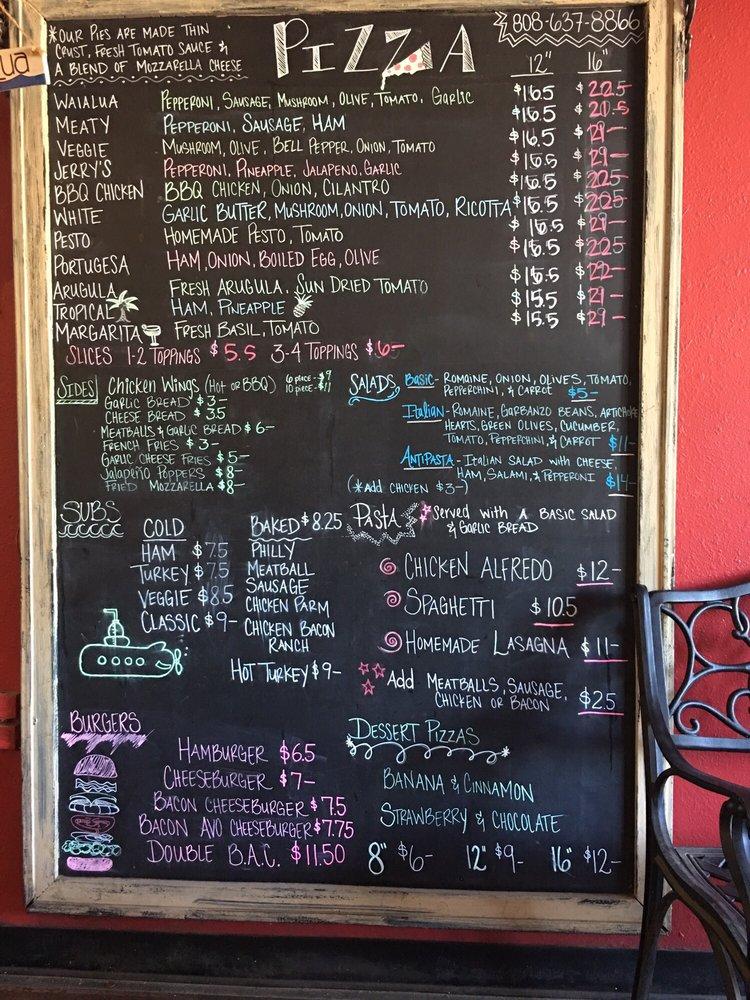 *Our Pies are made thin
crust, fresh tomato sauce &
a blend of mozzarella cheese
PIZZA
808-637-8866
12" 16"
Waialua Pepperoni, Sausage, Mushroom, Olive, Tomato, Garlic $16.5 $22.5
Meaty Pepperoni, Sausage, Ham $16.5 $21.5
Veggie Mushroom, Olive, Bell Pepper, Onion, Tomato $16.5 $21-
Jerry's Pepperoni, Pineapple, Jalapeno, Garlic $16.5 $21-
BBQ Chicken BBQ Chicken, Onion, Cilantro $16.5 $22.5
White Garlic Butter, Mushroom, Onion, Tomato, Ricotta $16.5 $22.5
Pesto Homemade Pesto, Tomato $16.5 $21-
Portugesa Ham, Onion, Boiled Egg, Olive $16.5 $22.5
Arugula Fresh Arugula, Sun Dried Tomato $16.5 $22-
Tropical Ham, Pineapple $15.5 $21-
Margarita Fresh Basil, Tomato $15.5 $21-
Slices 1-2 Toppings $5.5 3-4 Toppings $6-
Sides Chicken Wings (Hot or BBQ) 6 piece - $9
10 piece - $11
Garlic Bread $3-
Cheese Bread $3.5
Meatballs & Garlic Bread $6-
French Fries $3-
Garlic Cheese Fries $5-
Jalapeño Poppers $8-
Fried Mozzarella $8-
Salads Basic - Romaine, Onion, Olives, Tomato,
Pepperchini, & Carrot $5-
Italian - Romaine, Garbanzo Beans, Artichoke
Hearts, Green Olives, Cucumber,
Tomato, Pepperchini, & Carrot $11-
Antipasta - Italian Salad with Cheese,
Ham, Salami, & Pepperoni $14-
(*Add chicken $3-)
Subs
Cold
Ham $7.5
Turkey $7.5
Veggie $8.5
Classic $9-
Baked $8.25
Philly
Meatball
Sausage
Chicken Parm
Chicken Bacon
Ranch
Hot Turkey $9-
Pasta Served with a basic salad
& garlic bread
Chicken Alfredo $12-
Spaghetti $10.5
Homemade Lasagna $11-
Add Meatballs, Sausage,
Chicken or Bacon $2.5
Burgers
Hamburger $6.5
Cheeseburger $7-
Bacon Cheeseburger $7.5
Bacon Avo Cheeseburger $7.75
Double B.A.C. $11.50
Dessert Pizzas
Banana & Cinnamon
Strawberry & Chocolate
8" $6- 12" $9- 16" $12-